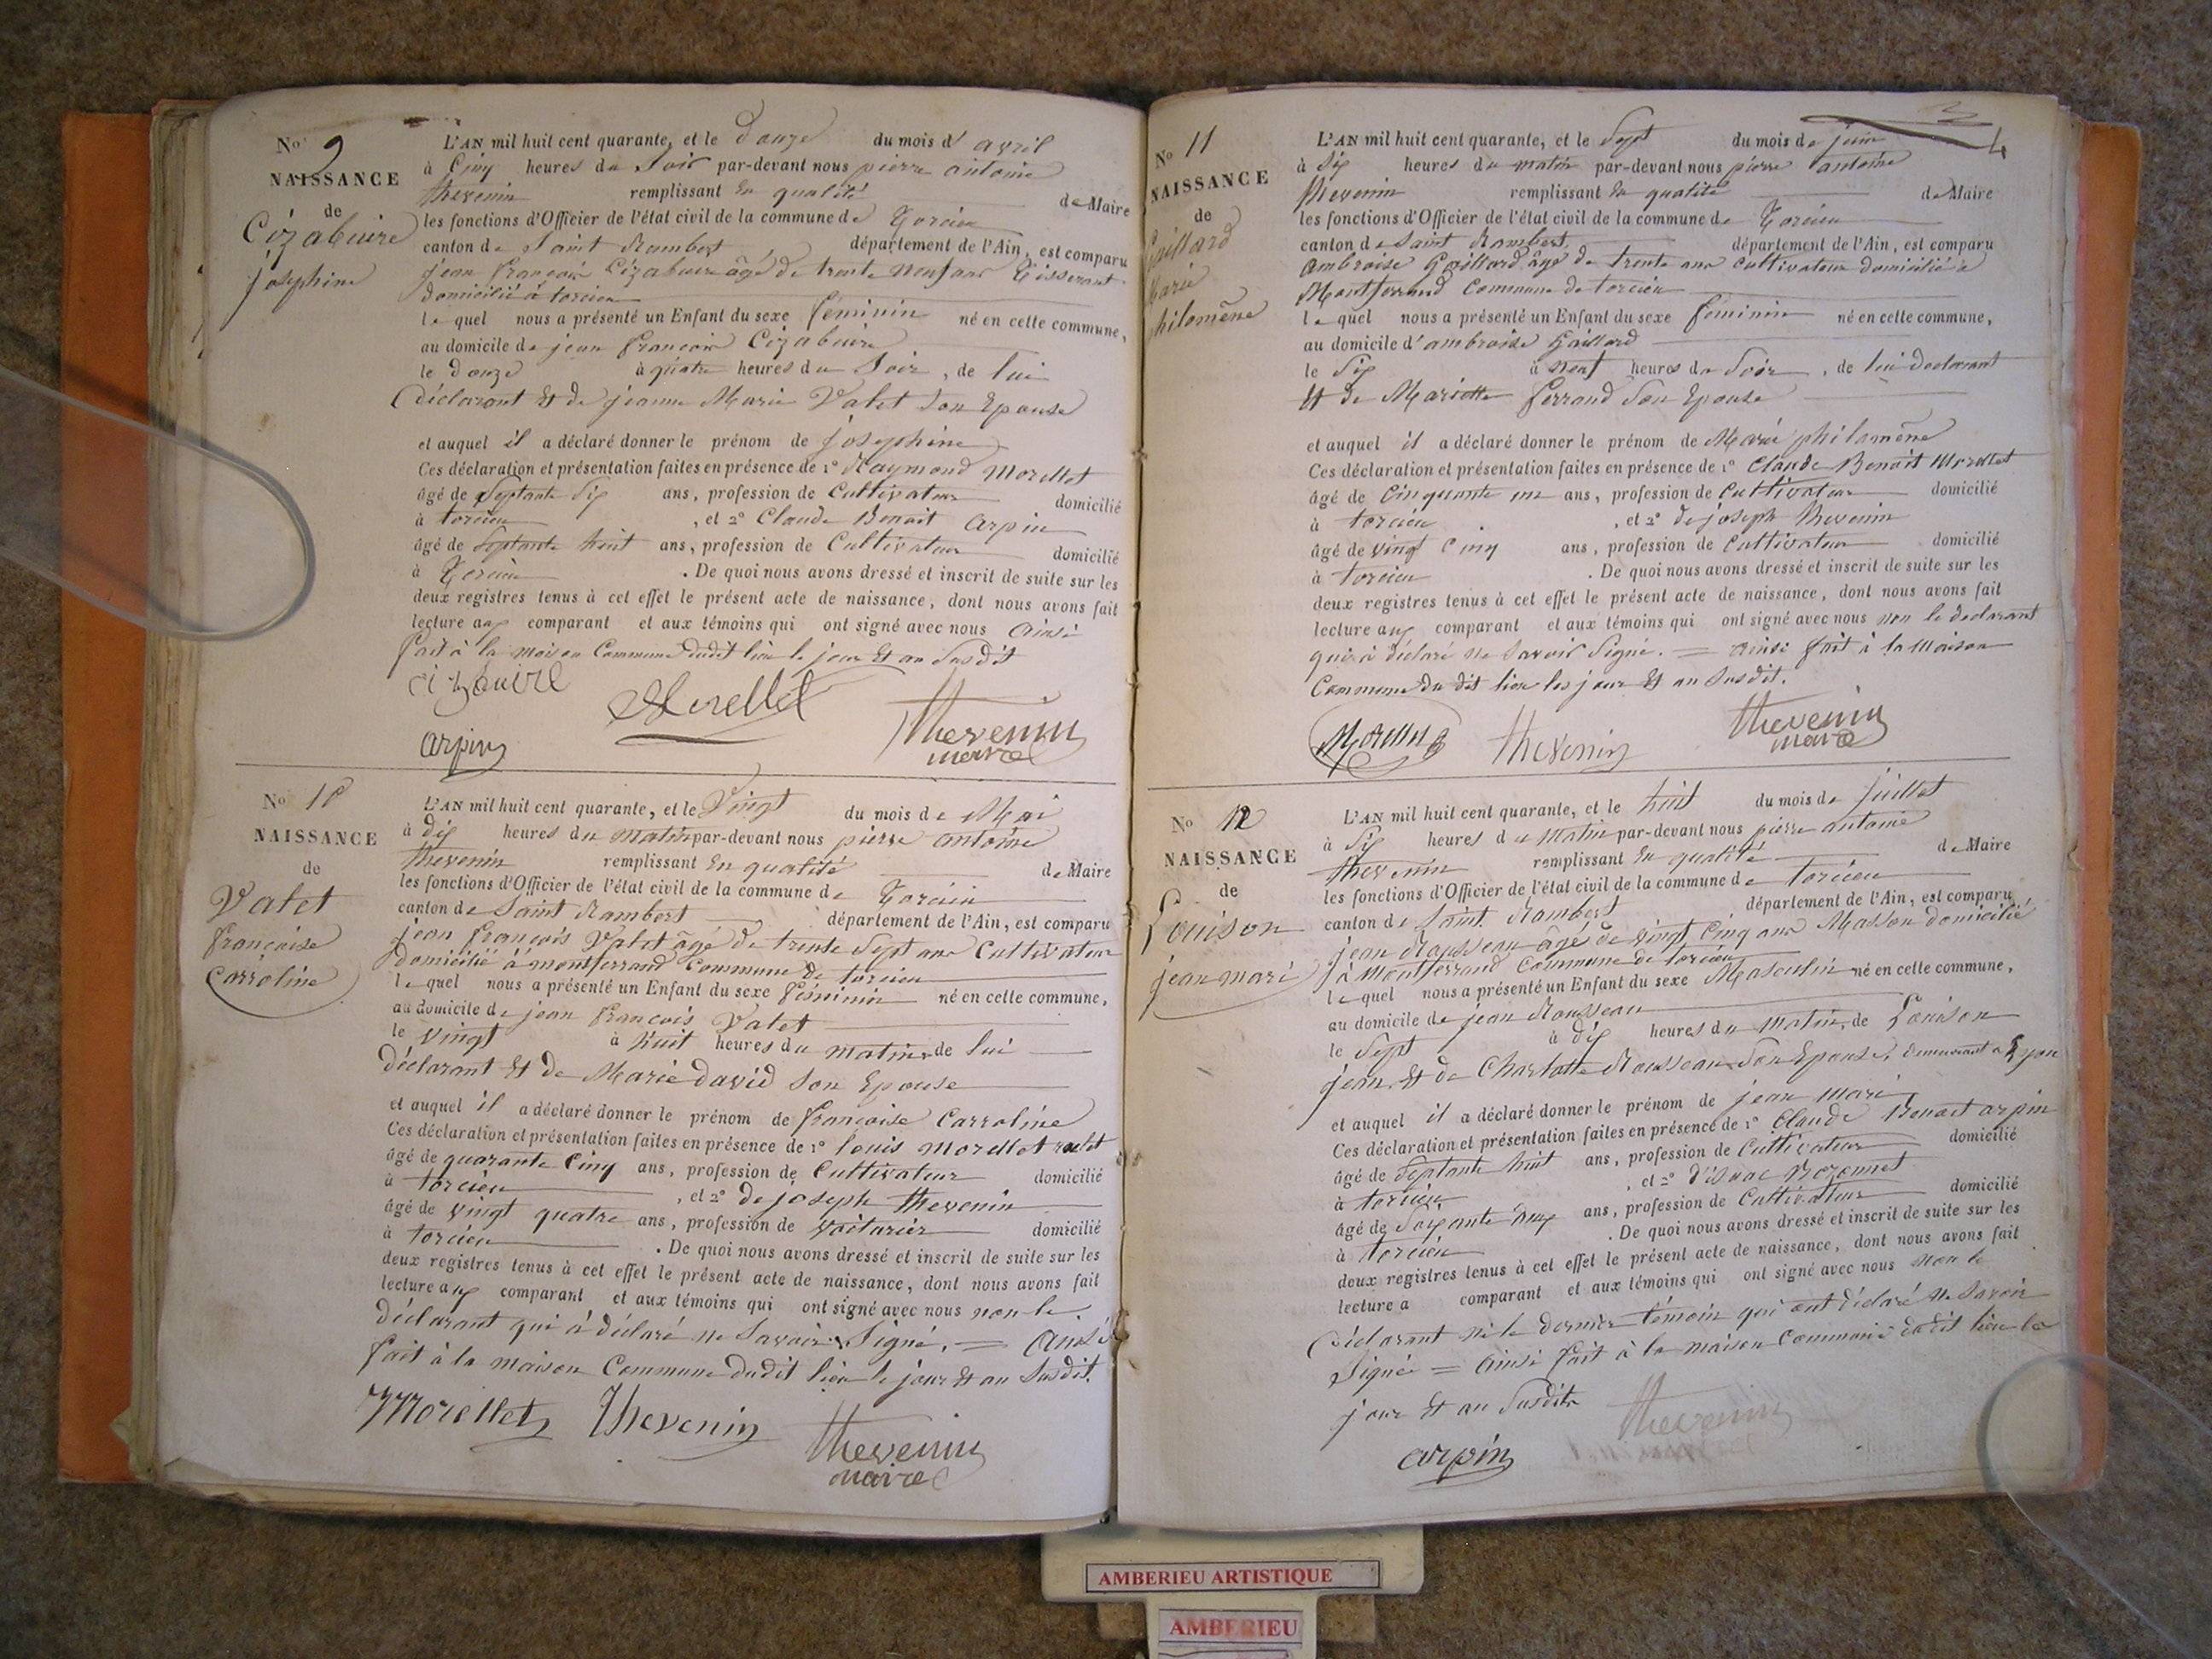 No 9
NAISSANCE
de
Cizabuire
josephine
L'AN mil huit cent quarante, et le Douze du mois d' avril
à Cinq heures du Soir par-devant nous pierre antoine
thevenin remplissant En qualité de Maire
les fonctions d'Officier de l'état civil de la commune de Torcieu
canton de Saint Rambert département de l'Ain, est comparu
jean françois Cizabuire âgé de trente neuf ans Tisserant
domicilié à torcieu
le quel nous a présenté un Enfant du sexe féminin né en cette commune,
au domicile de jean françois Cizabuire
le douze à quatre heures du Soir, de lui
Déclarant Et de jeanne Marie Valet Son Epouse
et auquel il a déclaré donner le prénom de josephine
Ces déclaration et présentation faites en présence de 1° Raymond Morellet
âgé de Septante Six ans, profession de Cultivateur domicilié
à torcieu, et 2° Claude Benoit Arpin
âgé de Septante huit ans, profession de Cultivateur domicilié
à Torcieu. De quoi nous avons dressé et inscrit de suite sur les
deux registres tenus à cet effet le présent acte de naissance, dont nous avons fait
lecture aux comparant et aux témoins qui ont signé avec nous Ainsi
fait à la maison Commune dudit lieu le jour Et an Susdit
Morellet
arpin
thevenin
maire
No 10
NAISSANCE
de
Valet
françoise
Carroline
L'AN mil huit cent quarante, et le Vingt du mois de Mai
à dix heures du matin par-devant nous pierre antoine
thevenin remplissant En qualité de Maire
les fonctions d'Officier de l'état civil de la commune de Torcieu
canton de Saint Rambert département de l'Ain, est comparu
jean françois Valet âgé de trente Sept ans Cultivateur
domicilié à montferrand Commune de torcieu
le quel nous a présenté un Enfant du sexe féminin né en cette commune,
au domicile de jean françois Valet
le vingt à huit heures du matin, de lui
déclarant Et de Marie david Son Epouse
et auquel il a déclaré donner le prénom de françoise Carroline
Ces déclaration et présentation faites en présence de 1° louis morellet
âgé de quarante Cinq ans, profession de Cultivateur domicilié
à torcieu, et 2° de joseph thevenin
âgé de vingt quatre ans, profession de voiturier domicilié
à torcieu. De quoi nous avons dressé et inscrit de suite sur les
deux registres tenus à cet effet le présent acte de naissance, dont nous avons fait
lecture aux comparant et aux témoins qui ont signé avec nous non le
déclarant qui à déclaré ne Savoir Signé. = Ainsi
fait à la maison Commune dudit lieu le jour Et an Susdit.
Morellet Thevenin
thevenin
maire
4
No 11
NAISSANCE
de
Gaillard
Marie
philomène
L'AN mil huit cent quarante, et le Sept du mois de juin
à Six heures du matin par-devant nous pierre antoine
thevenin remplissant En qualité de Maire
les fonctions d'Officier de l'état civil de la commune de Torcieu
canton de Saint Rambert département de l'Ain, est comparu
Ambroise Gaillard âgé de trente ans Cultivateur domicilié à
Montferrand Commune de torcieu
le quel nous a présenté un Enfant du sexe féminin né en cette commune,
au domicile d'ambroise Gaillard
le Six à neuf heures du Soir, de lui déclarant
Et de Mariette ferrand Son Epouse
et auquel il a déclaré donner le prénom de Marie philomène
Ces déclaration et présentation faites en présence de 1° Claude Benoit Morellet
âgé de Cinquante un ans, profession de Cultivateur domicilié
à torcieu, et 2° de joseph thevenin
âgé de vingt Cinq ans, profession de Cultivateur domicilié
à torcieu. De quoi nous avons dressé et inscrit de suite sur les
deux registres tenus à cet effet le présent acte de naissance, dont nous avons fait
lecture aux comparant et aux témoins qui ont signé avec nous non le declarant
qui à déclaré ne Savoir Signé. = ainsi fait à la Maison
Commune du dit lieu les jour Et an Susdit.
thevenin
thevenin
maire
No 12
NAISSANCE
de
Louison
jean mari
L'AN mil huit cent quarante, et le huit du mois de juillet
à Six heures du Matin par-devant nous pierre antoine
thevenin remplissant En qualité de Maire
les fonctions d'Officier de l'état civil de la commune de torcieu
canton de Saint Rambert département de l'Ain, est comparu
jean Rousseau âgé de vingt Cinq ans Masson domicilié
à Montferrand Commune de torcieu
le quel nous a présenté un Enfant du sexe Masculin né en cette commune,
au domicile de jean Rousseau
le Sept à dix heures du matin, de Louison
jean Et de Charlotte Rousseau Son Epouse, demeurant a Lyon
et auquel il a déclaré donner le prénom de jean mari
Ces déclaration et présentation faites en présence de 1° Claude Benoit arpin
âgé de Septante huit ans, profession de Cultivateur domicilié
à torcieu, et 2° d'isaac
âgé de Soixante ans, profession de Cultivateur domicilié
à torcieu. De quoi nous avons dressé et inscrit de suite sur les
deux registres tenus à cet effet le présent acte de naissance, dont nous avons fait
lecture a comparant et aux témoins qui ont signé avec nous non le
Déclarant ni le dernier témoin qui ont déclaré ne Savoir
Signé = Ainsi fait à la maison Commune dudit lieu les
jour Et an Susdits
thevenin
arpin
AMBERIEU ARTISTIQUE
AMBERIEU